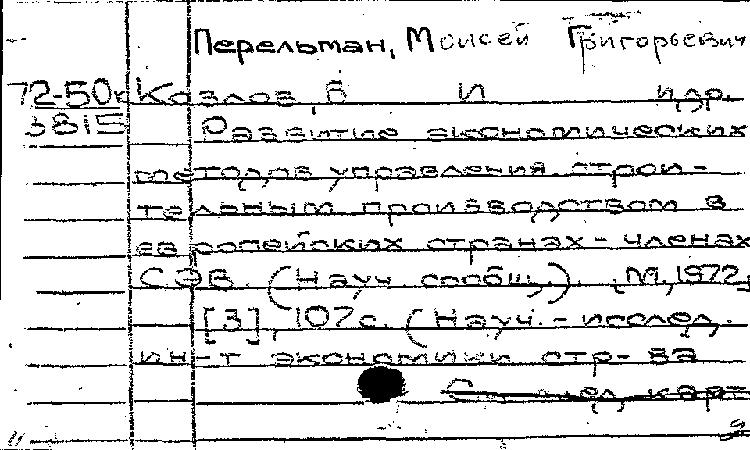 Перельман, Моисей Григорьевич
72-50к Козлов, В И и др.
3815 Развитие экономических
методов управления строи-
тельным производством в
европейских странах-членах
СЭВ. (Науч. сообщ.). М., 1972,
[3], 107 с. (Науч.-исслед.
ин-т экономики стр-ва
След. карт